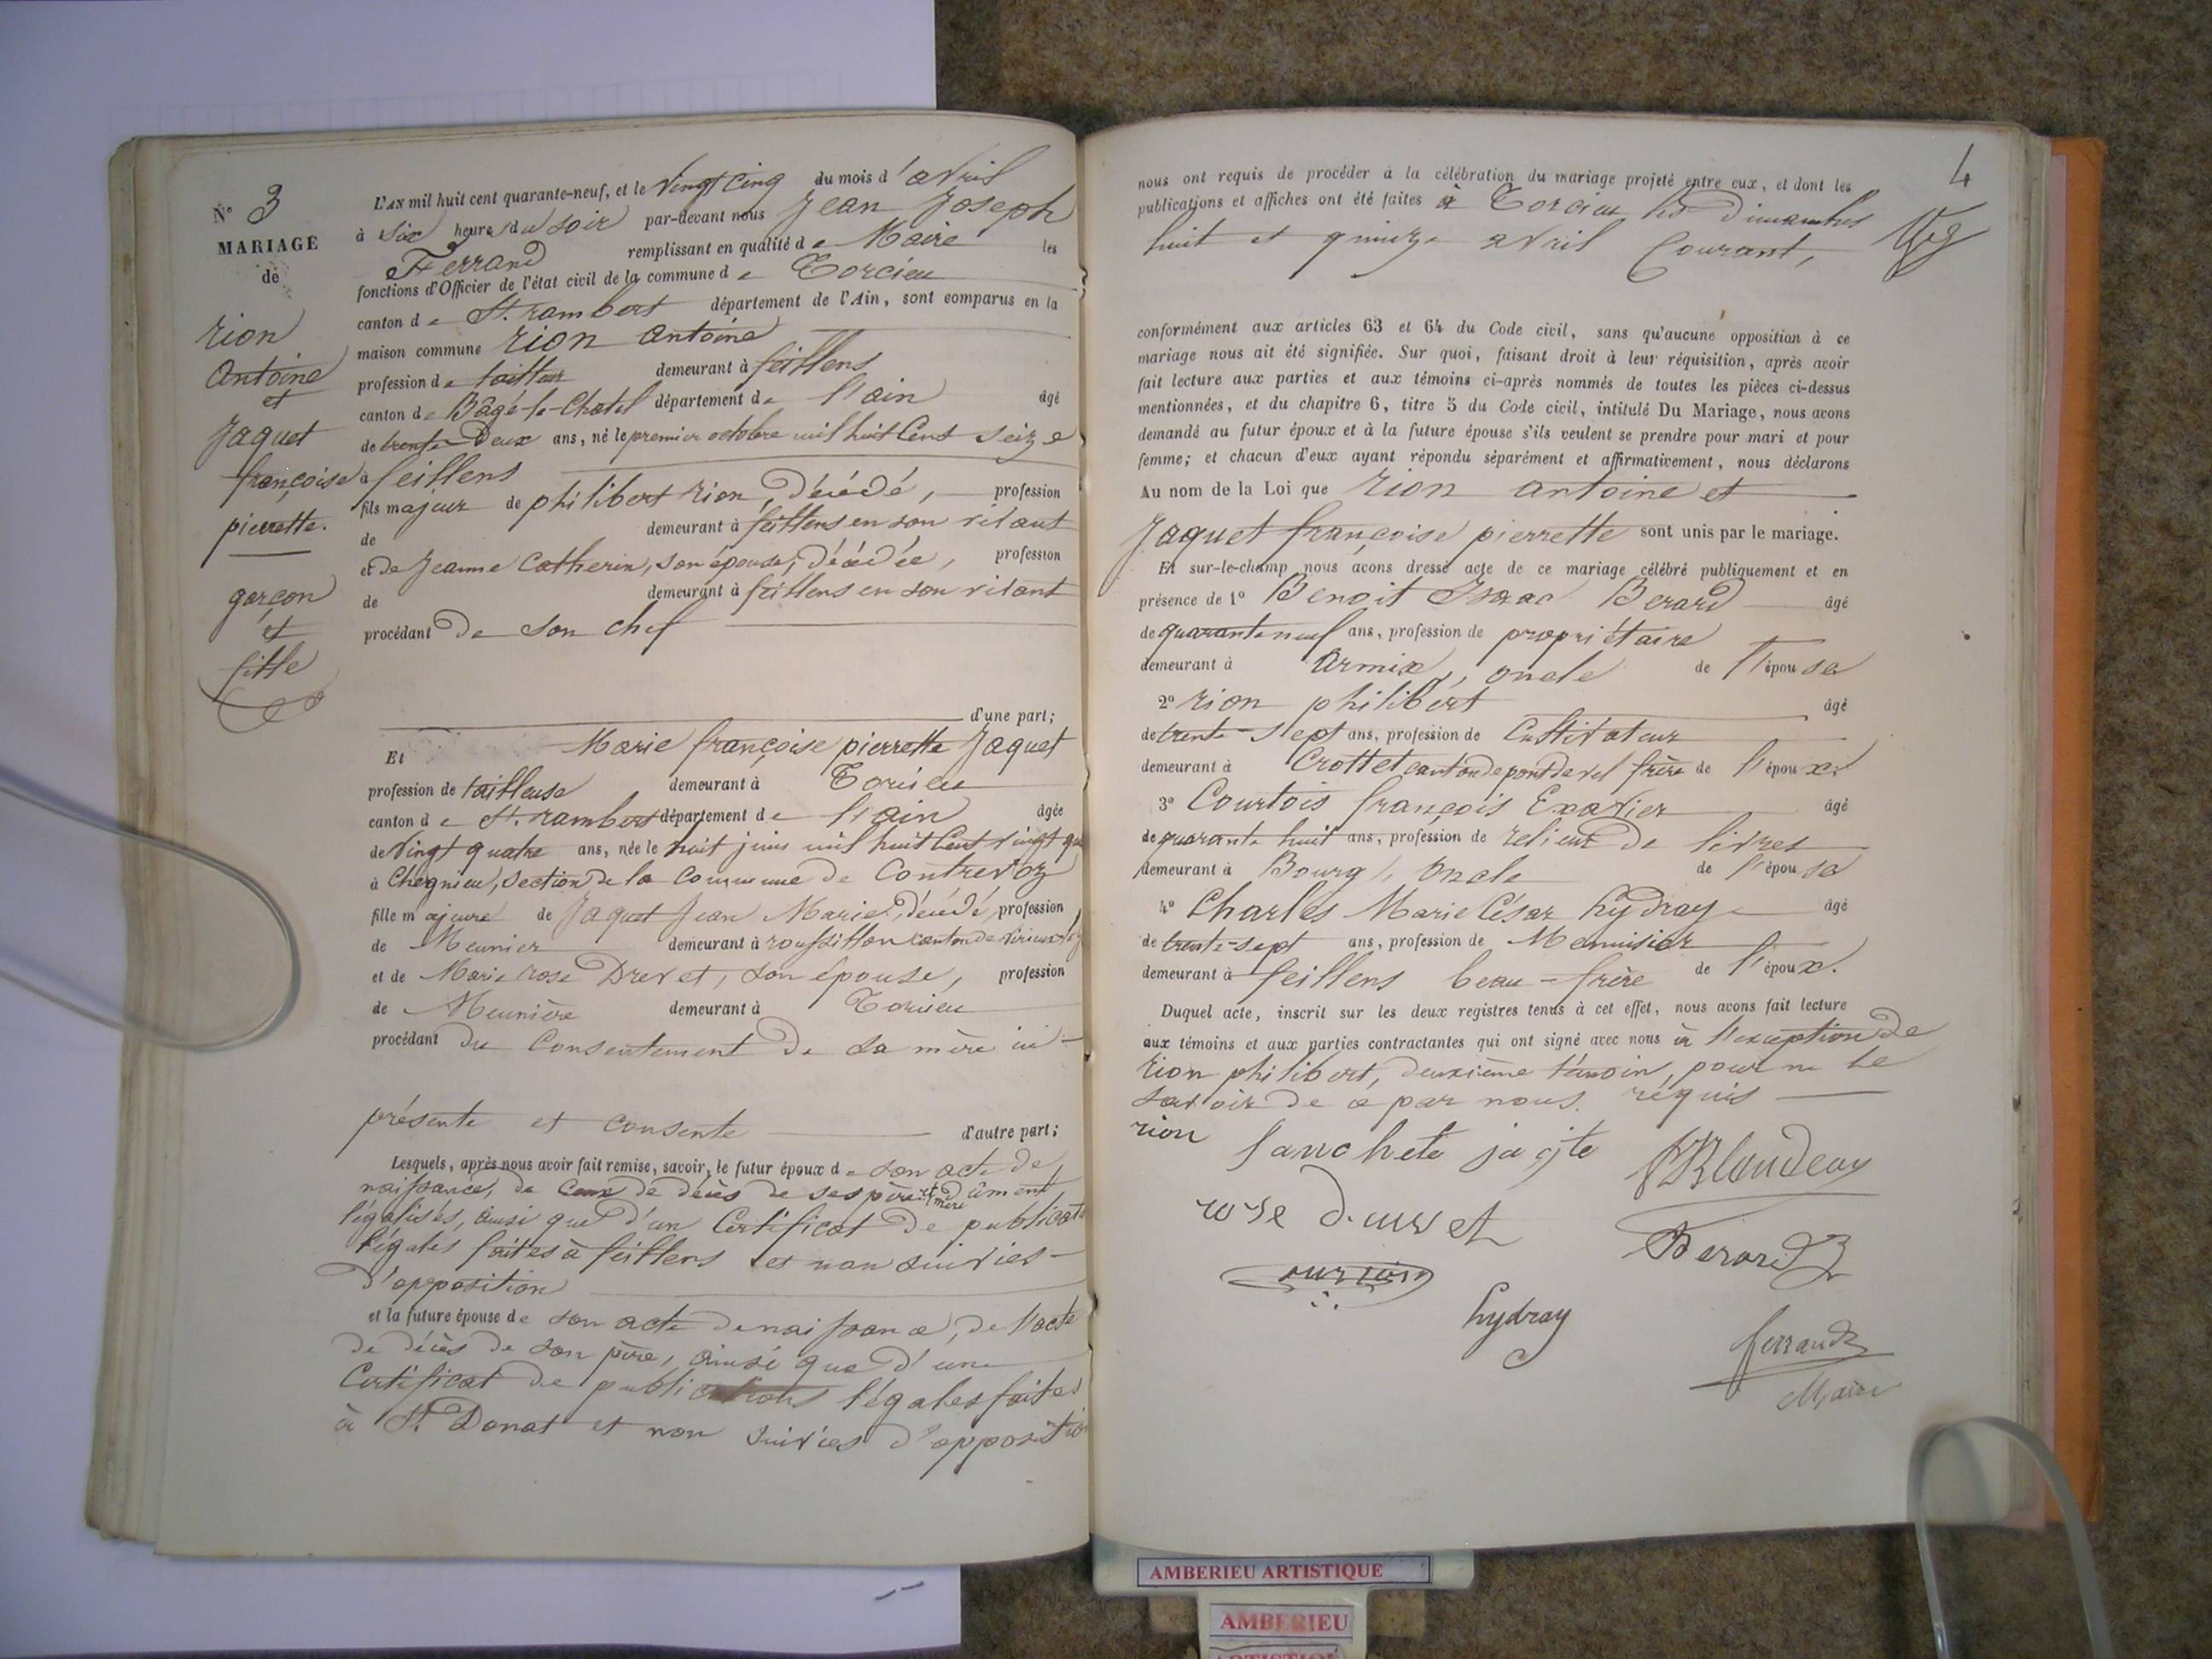 N° 3
MARIAGE
de
rion
Antoine
et
Jaquet
françoise
pierrette.
garçon
et
fille
L'AN mil huit cent quarante-neuf, et le Vingt Cinq du mois d'avril
à six heures du soir par-devant nous Jean Joseph
Ferrand remplissant en qualité de Maire les
fonctions d'Officier de l'état civil de la commune de Torcieu
canton de St. rambert département de l'Ain, sont comparus en la
maison commune rion Antoine
profession de tailleur demeurant à feillens
canton de Bâgé-le-Chatel département de l'ain âgé
de trente-Deux ans, né le premier octobre mil huit Cent seize
à feillens
fils majeur de philibert rion, Décédé, profession
de demeurant à feillens en son vivant
et de Jeanne Catherin, son épouse, Décédée, profession
de demeurant à feillens en son vivant
procédant De son chef
d'une part;
Et Marie françoise pierrette Jaquet
profession de tailleuse demeurant à Torcieu
canton de St. rambert département de l'ain âgée
de Vingt quatre ans, née le huit juin mil huit Cent vingt qu
à Chegnieu, Section De la Commune de Contrevoz
fille majeure de Jaquet Jean Marie, Décédé, profession
de Meunier demeurant à roussillon canton de Virieux-le-g
et de Marie rose Drevet, son épouse, profession
de Meunière demeurant à Torcieu
procédant du Consentement De sa mère ici-
présente et consente d'autre part;
Lesquels, après nous avoir fait remise, savoir, le futur époux de son acte De
naissance, De Ceux De décès De ses père et mère Dûment
légalisés, ainsi que D'un Certificat De publicat
légales faites à feillens et non suivies
D'opposition
et la future épouse de son acte De naissance, De l'acte
De décès De son père, ainsi que D'un
Certificat De publications légales faites
à St. Donat et non suivies D'opposition
4
nous ont requis de procéder à la célébration du mariage projeté entre eux, et dont les
publications et affiches ont été faites à Torcieu les Dimanches
huit et quinze avril Courant,
conformément aux articles 63 et 64 du Code civil, sans qu'aucune opposition à ce
mariage nous ait été signifiée. Sur quoi, faisant droit à leur réquisition, après avoir
fait lecture aux parties et aux témoins ci-après nommés de toutes les pièces ci-dessus
mentionnées, et du chapitre 6, titre 5 du Code civil, intitulé Du Mariage, nous avons
demandé au futur époux et à la future épouse s'ils veulent se prendre pour mari et pour
femme; et chacun d'eux ayant répondu séparément et affirmativement, nous déclarons
Au nom de la Loi que rion antoine et
Jaquet françoise pierrette sont unis par le mariage.
Et sur-le-champ nous avons dressé acte de ce mariage célébré publiquement et en
présence de 1° Benoit Isaac Berard âgé
de quarante neuf ans, profession de propriétaire
demeurant à Armix, oncle de l'épouse
2° rion philibert âgé
de trente-Sept ans, profession de Cultivateur
demeurant à Crottet canton de pont de vel frère de l'époux
3° Courtois françois Exavier âgé
de quarante huit ans, profession de relieur De livres
demeurant à Bourg, oncle de l'épouse
4° Charles Marie César hydray âgé
de trente-sept ans, profession de Menuisier
demeurant à feillens beau-frère de l'époux.
Duquel acte, inscrit sur les deux registres tenus à cet effet, nous avons fait lecture
aux témoins et aux parties contractantes qui ont signé avec nous à l'exception De
rion philibert, Deuxième témoin, pour ne le
savoir de ce par nous réquis
rion
Berard
hydray
ferrand
Maire
AMBERIEU ARTISTIQUE
AMBERIEU
ARTISTIQUE